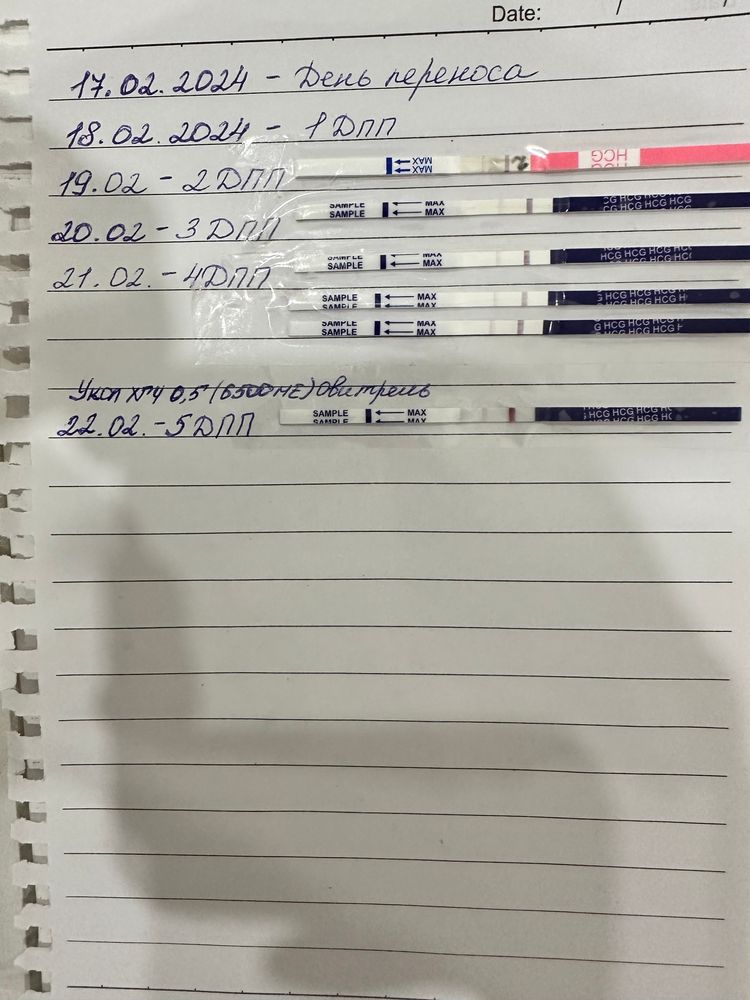 Date: / /
17.02.2024 - День переноса
18.02.2024 - 1 ДПП
MAX MAX HCG
19.02 - 2 ДПП
SAMPLE SAMPLE MAX MAX CG HCG HCG HCG CG HCG HCG HCG
20.02 - 3 ДПП
SAMPLE SAMPLE MAX MAX HCG HCG HCG HCG
21.02. - 4 ДПП
SAMPLE MAX G HCG HCG HC
SAMPLE SAMPLE MAX MAX G HCG HCG HCG F
Укол ХГЧ 0,5 (6500 МЕ) Овитрель
SAMPLE SAMPLE MAX MAX HCG HCG HCG HCG
22.02. - 5 ДПП